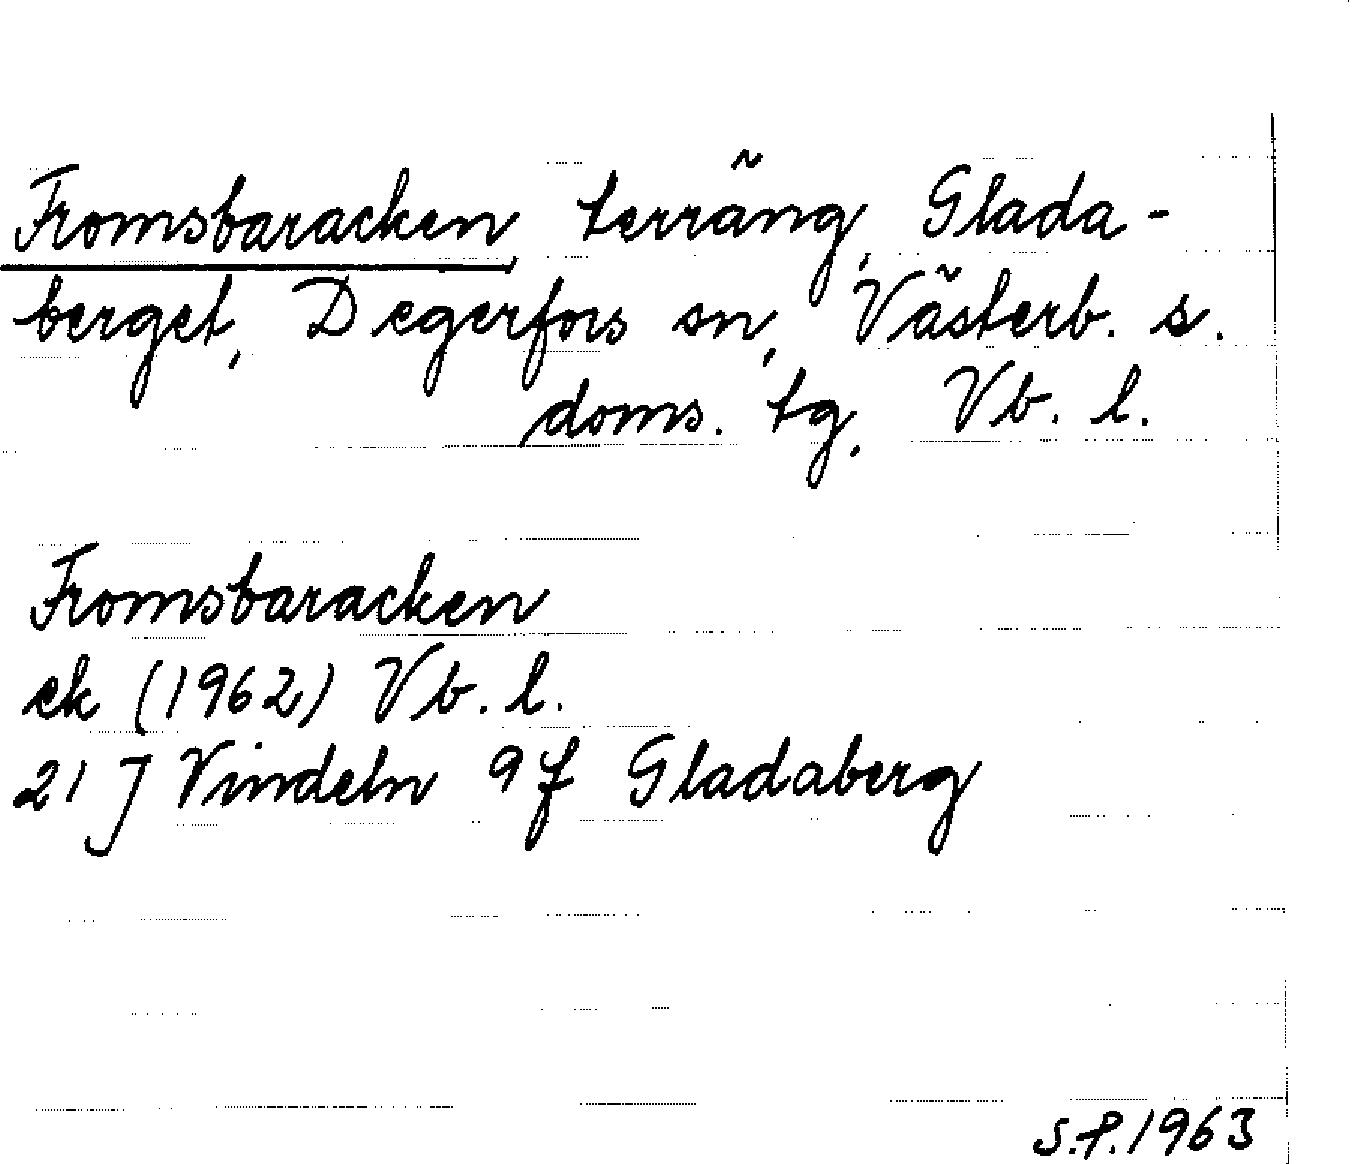 Fromsbaracken, terräng, Glada-
berget, Degerfors sn, Västerb. s.
doms. tg, Vb. l.
Fromsbaracken
ek (1962) Vb. l.
21 J Vindeln 9f Gladaberg
S.P. 1963